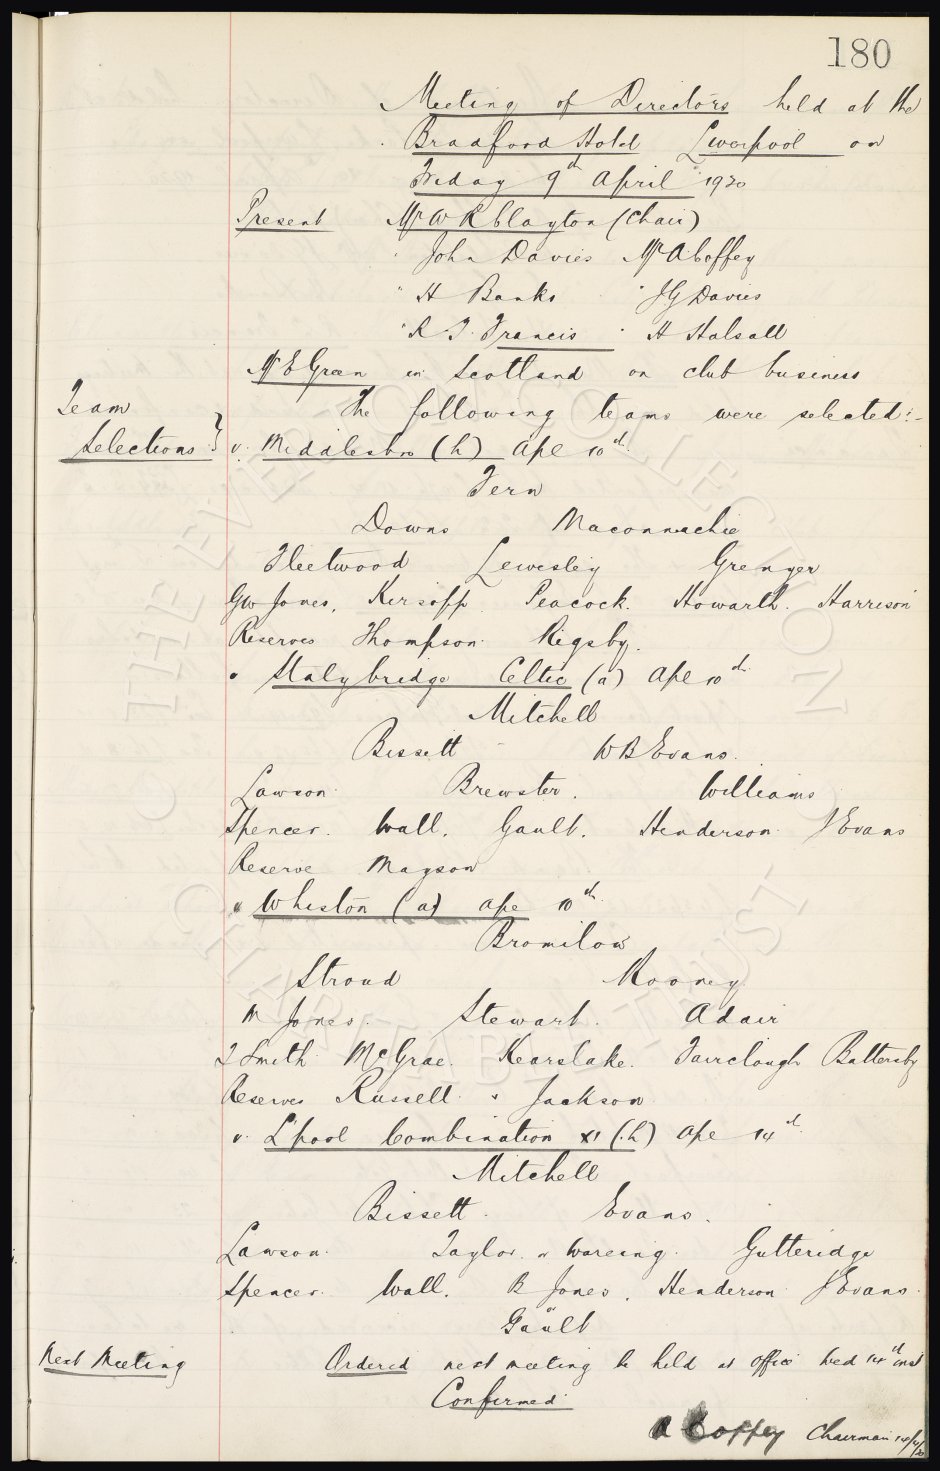 180
Meeting of Directors held at the
Bradford Hotel Liverpool on
Friday 9th April 1920
Present Mr W R Clayton (Chair)
" John Davies Mr A Coffey
" H Banks " J G Davies
" R T Francis " H Halsall
Mr E Green in Scotland on club business
Team The following teams were selected:-
Selections } v. Middlesbro (h) Apl 10th
Fern
Downs Maconnachie
Fleetwood Lewesley Grenyer
Gw Jones. Kirsopp. Peacock. Howarth. Harrison
Reserves Thompson. Rigsby.
" Stalybridge Celtic (a) Apl 10th
Mitchell
Bissett W B Evans.
Lawson. Brewster. Williams
Spencer. Wall. Gault. Henderson J Evans
Reserve Mayson
" Whiston (a) Apl 10th
Bromilow
Stroud Mooney
M Jones. Stewart. Adair
J Smith McGrae. Kearslake. Fairclough Battersby
Reserves Russell & Jackson
v. L'pool Combination XI (h) Apl 14th
Mitchell
Bissett. Evans.
Lawson. Taylor. or Wareing. Gutteridge
Spencer. Wall. B Jones. Henderson J Evans.
or
Gault
Next Meeting Ordered next meeting be held at office Wed 14th inst
Confirmed
A Coffey Chairman 14/4/20
© THE EVERTON COLLECTION
CHARITABLE TRUST